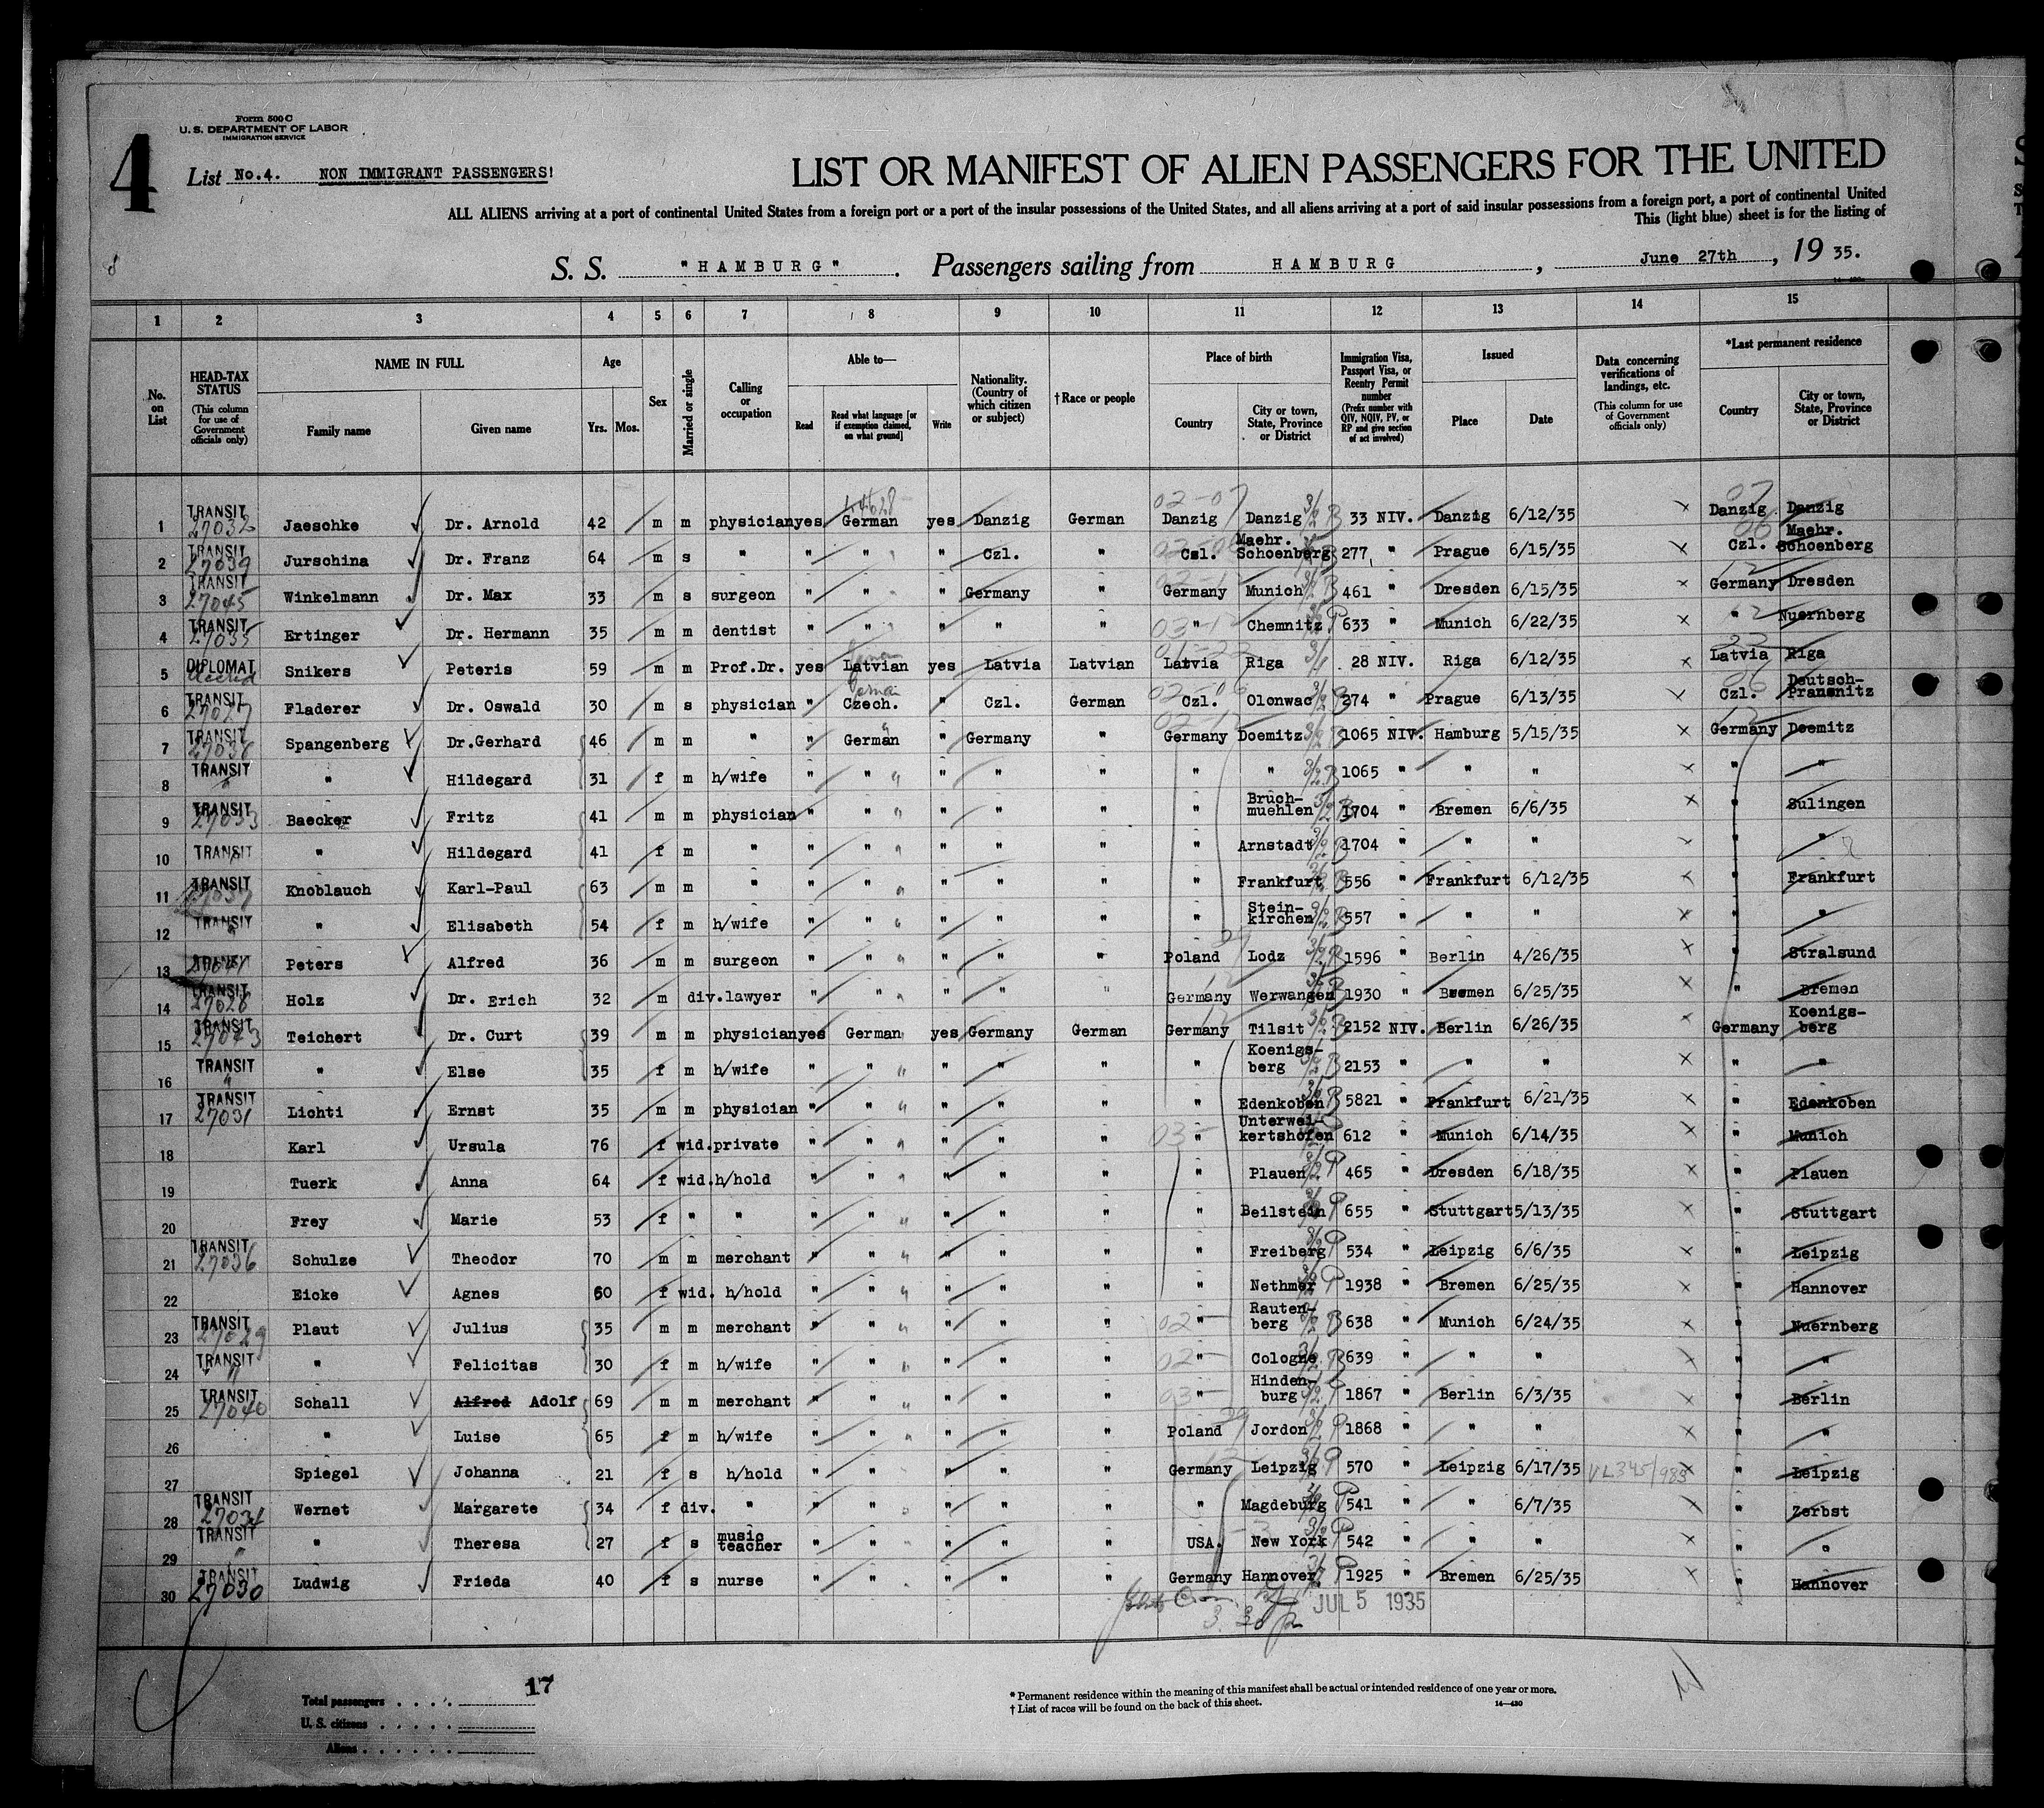 Form 500 C
U. S. DEPARTMENT OF LABOR
IMMIGRATION SERVICE
4
List No.4. NON IMMIGRANT PASSENGERS!
LIST OR MANIFEST OF ALIEN PASSENGERS FOR THE UNITED
ALL ALIENS arriving at a port of continental United States from a foreign port or a port of the insular possessions of the United States, and all aliens arriving at a port of said insular possessions from a foreign port, a port of continental United
This (light blue) sheet is for the listing of
S. S. "HAMBURG". Passengers sailing from HAMBURG, June 27th, 19 35.
1 2 3 4 5 6 7 8 9 10 11 12 13 14 15
No. on List
HEAD-TAX STATUS (This column for use of Government officials only)
NAME IN FULL Family name Given name
Age Yrs. Mos.
Sex
Married or single
Calling or occupation
Able to— Read Read what language [or if exemption claimed, on what ground] Write
Nationality. (Country of which citizen or subject)
†Race or people
Place of birth Country City or town, State, Province or District
Immigration Visa, Passport Visa, or Reentry Permit number (Prefix number with QIV, NQIV, PV, or RP and give section of act involved)
Issued Place Date
Data concerning verifications of landings, etc. (This column for use of Government officials only)
*Last permanent residence Country City or town, State, Province or District
1 TRANSIT 27032 Jaeschke Dr. Arnold 42 m m physician yes German yes Danzig German Danzig Danzig 33 NIV. Danzig 6/12/35 Danzig Danzig
2 TRANSIT 27039 Jurschina Dr. Franz 64 m s " " " " Czl. " Czl. Maehr. Schoenberg 277 " Prague 6/15/35 Czl. Maehr. Schoenberg
3 TRANSIT 27045 Winkelmann Dr. Max 33 m s surgeon " " " Germany " Germany Munich 461 " Dresden 6/15/35 Germany Dresden
4 TRANSIT 27035 Ertinger Dr. Hermann 35 m m dentist " " " " " " Chemnitz 633 " Munich 6/22/35 " Nuernberg
5 DIPLOMAT Snikers Peteris 59 m m Prof.Dr. yes Latvian yes Latvia Latvian Latvia Riga 28 NIV. Riga 6/12/35 Latvia Riga
6 TRANSIT Fladerer Dr. Oswald 30 m s physician " Czech. " Czl. German Czl. Olonwac 274 " Prague 6/13/35 Czl. Deutsch-Prausnitz
7 TRANSIT Spangenberg Dr.Gerhard 46 m m " " German " Germany " Germany Doemitz 1065 NIV. Hamburg 5/15/35 Germany Doemitz
8 TRANSIT " Hildegard 31 f m h/wife " " " " " " " 1065 " " " " "
9 TRANSIT 27033 Baecker Fritz 41 m m physician " " " " " " Bruch-muehlen 1704 " Bremen 6/6/35 " Sulingen
10 TRANSIT " Hildegard 41 f m " " " " " " " Arnstadt 1704 " " " " "
11 TRANSIT Knoblauch Karl-Paul 63 m m " " " " " " " Frankfurt 556 " Frankfurt 6/12/35 " Frankfurt
12 TRANSIT " Elisabeth 54 f m h/wife " " " " " " Stein-kirchen 557 " " " " "
13 TRANSIT Peters Alfred 36 m m surgeon " " " " " Poland Lodz 1596 " Berlin 4/26/35 " Stralsund
14 TRANSIT 27028 Holz Dr. Erich 32 m div. lawyer " " " " " Germany Werwangen 1930 " Bremen 6/25/35 " Bremen
15 TRANSIT 27043 Teichert Dr. Curt 39 m m physician yes German yes Germany German Germany Tilsit 2152 NIV. Berlin 6/26/35 Germany Koenigs-berg
16 TRANSIT " " Else 35 f m h/wife " " " " " " Koenigs-berg 2153 " " " " "
17 TRANSIT 27031 Lichti Ernst 35 m m physician " " " " " " Edenkoben 5821 " Frankfurt 6/21/35 " Edenkoben
18 Karl Ursula 76 f wid. private " " " " " " Unterwei-kertshofen 612 " Munich 6/14/35 " Munich
19 Tuerk Anna 64 f wid. h/hold " " " " " " Plauen 465 " Dresden 6/18/35 " Plauen
20 Frey Marie 53 f " " " " " " " " Beilstein 655 " Stuttgart 5/13/35 " Stuttgart
21 TRANSIT 27036 Schulze Theodor 70 m m merchant " " " " " " Freiberg 534 " Leipzig 6/6/35 " Leipzig
22 Eicke Agnes 60 f wid. h/hold " " " " " " Nethmer 1938 " Bremen 6/25/35 " Hannover
23 TRANSIT 27029 Plaut Julius 35 m m merchant " " " " " " Rauten-berg 638 " Munich 6/24/35 " Nuernberg
24 TRANSIT " " Felicitas 30 f m h/wife " " " " " " Cologne 639 " " " " "
25 TRANSIT 27040 Schall Alfred Adolf 69 m m merchant " " " " " " Hinden-burg 1867 " Berlin 6/3/35 " Berlin
26 " Luise 65 f m h/wife " " " " " Poland Jordon 1868 " " " " "
27 Spiegel Johanna 21 f s h/hold " " " " " Germany Leipzig 570 " Leipzig 6/17/35 " Leipzig
28 TRANSIT 27034 Wernet Margarete 34 f div. " " " " " " " Magdeburg 541 " " 6/7/35 " Zerbst
29 TRANSIT " " Theresa 27 f s music teacher " " " " " USA. New York 542 " " " " "
30 TRANSIT 27030 Ludwig Frieda 40 f s nurse " " " " " Germany Hannover 1925 " Bremen 6/25/35 " Hannover
JUL 5 1935
Total passengers . . . . 17
U. S. citizens . . . . .
Aliens . . . . . .
* Permanent residence within the meaning of this manifest shall be actual or intended residence of one year or more.
† List of races will be found on the back of this sheet. 14—430